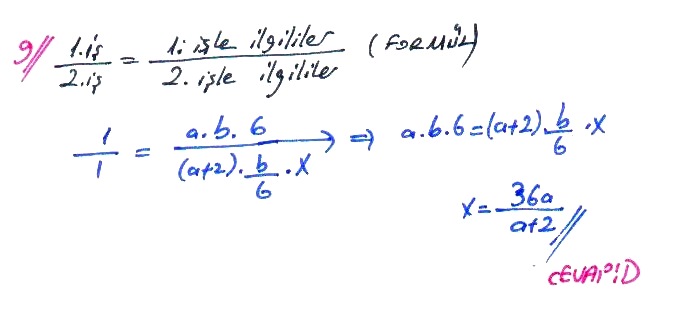 9// 1.iş / 2.iş = 1. işle ilgililer / 2. işle ilgililer (FORMÜL)
1/1 = a.b.6 / (a+2).b/6.x ⇒ a.b.6=(a+2).b/6.x
x = 36a / a+2 //
CEVAP: D